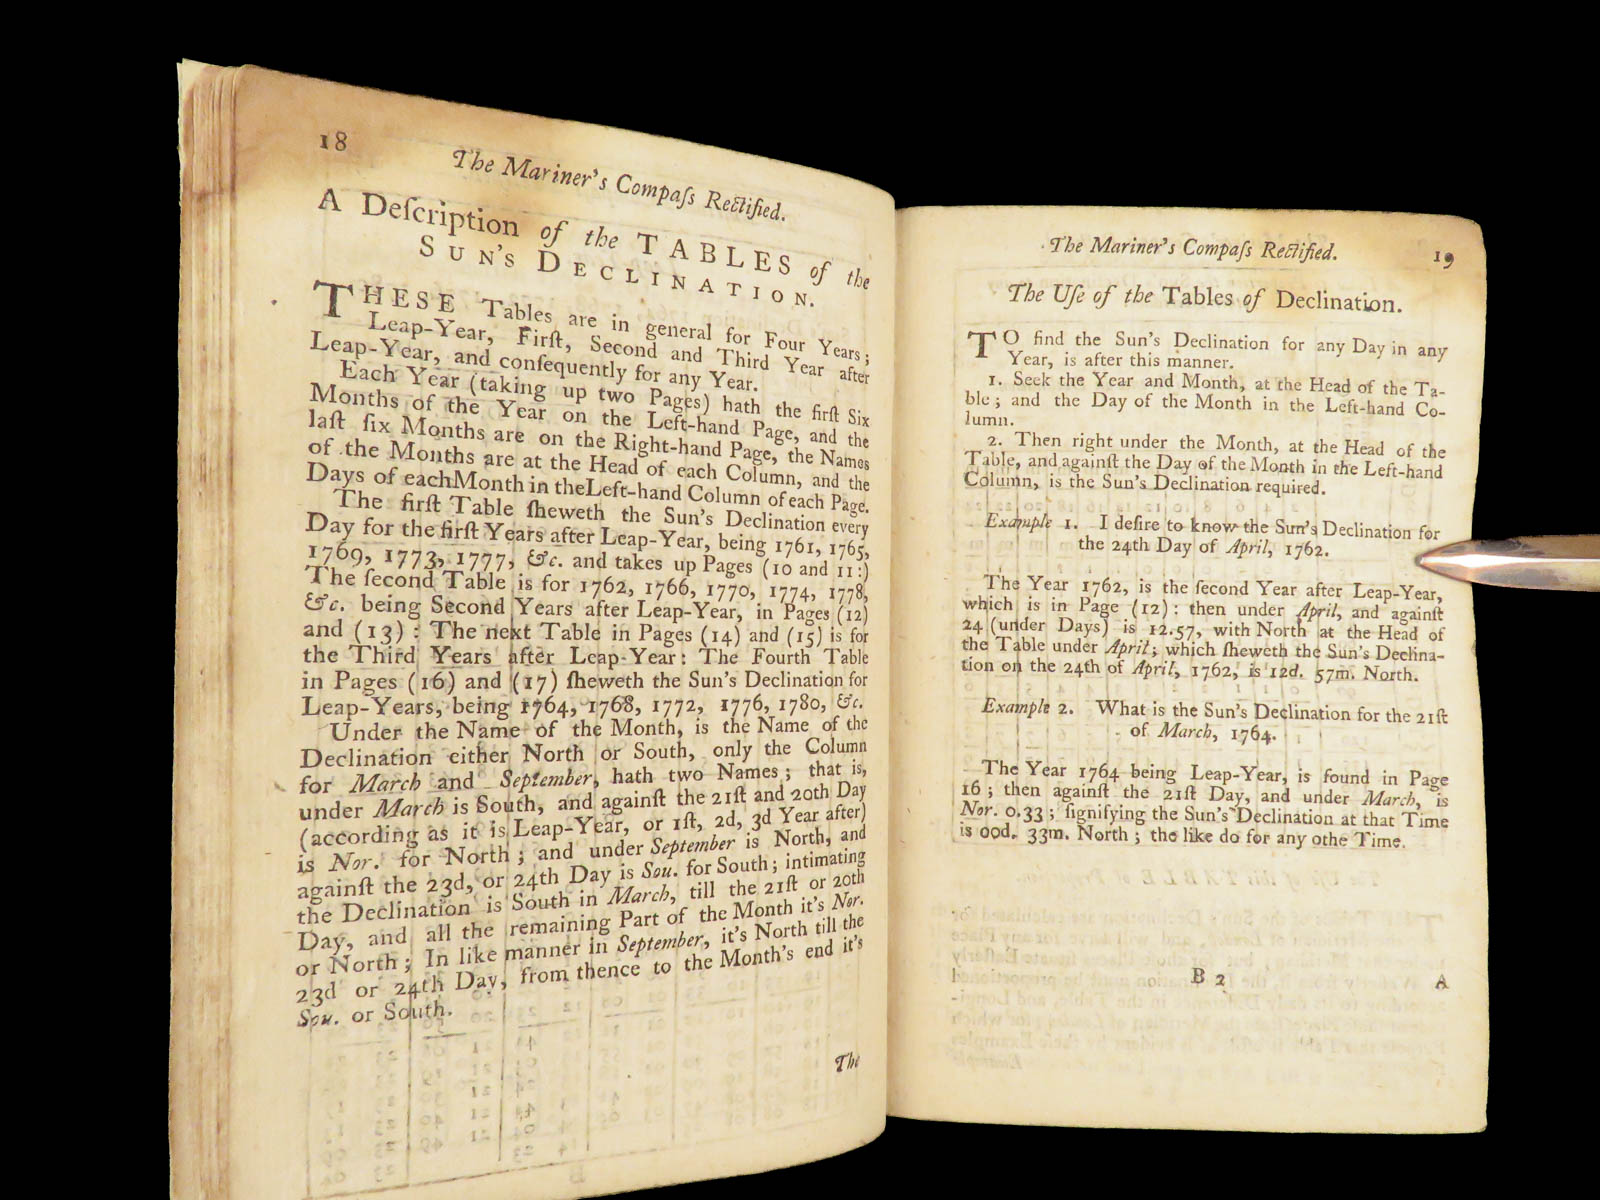 18
The Mariner's Compaſs Rectified.
A Deſcription of the TABLES of the
SUN'S DECLINATION.
THESE Tables are in general for Four Years;
Leap-Year, Firſt, Second and Third Year after
Leap-Year, and conſequently for any Year.
Each Year (taking up two Pages) hath the firſt Six
Months of the Year on the Left-hand Page, and the
laſt ſix Months are on the Right-hand Page, the Names
of the Months are at the Head of each Column, and the
Days of eachMonth in theLeft-hand Column of each Page.
The firſt Table ſheweth the Sun's Declination every
Day for the firſt Years after Leap-Year, being 1761, 1765,
1769, 1773, 1777, &c. and takes up Pages (10 and 11:)
The ſecond Table is for 1762, 1766, 1770, 1774, 1778,
&c. being Second Years after Leap-Year, in Pages (12)
and (13): The next Table in Pages (14) and (15) is for
the Third Years after Leap-Year: The Fourth Table
in Pages (16) and (17) ſheweth the Sun's Declination for
Leap-Years, being 1764, 1768, 1772, 1776, 1780, &c.
Under the Name of the Month, is the Name of the
Declination either North or South, only the Column
for March and September, hath two Names; that is,
under March is South, and againſt the 21ſt and 20th Day
(according as it is Leap-Year, or 1ſt, 2d, 3d Year after)
is Nor. for North; and under September is North, and
againſt the 23d, or 24th Day is Sou. for South; intimating
the Declination is South in March, till the 21ſt or 20th
Day, and all the remaining Part of the Month it's Nor.
or North; In like manner in September, it's North till the
23d or 24th Day, from thence to the Month's end it's
Sou. or South.
The
The Mariner's Compaſs Rectified.
19
The Uſe of the Tables of Declination.
TO find the Sun's Declination for any Day in any
Year, is after this manner.
1. Seek the Year and Month, at the Head of the Ta-
ble; and the Day of the Month in the Left-hand Co-
lumn.
2. Then right under the Month, at the Head of the
Table, and againſt the Day of the Month in the Left-hand
Column, is the Sun's Declination required.
Example 1. I deſire to know the Sun's Declination for
the 24th Day of April, 1762.
The Year 1762, is the ſecond Year after Leap-Year,
which is in Page (12): then under April, and againſt
24 (under Days) is 12.57, with North at the Head of
the Table under April; which ſheweth the Sun's Declina-
tion on the 24th of April, 1762, is 12d. 57m. North.
Example 2. What is the Sun's Declination for the 21ſt
of March, 1764.
The Year 1764 being Leap-Year, is found in Page
16; then againſt the 21ſt Day, and under March, is
Nor. 0.33; ſignifying the Sun's Declination at that Time
is 00d. 33m. North; the like do for any othe Time.
B 2
A